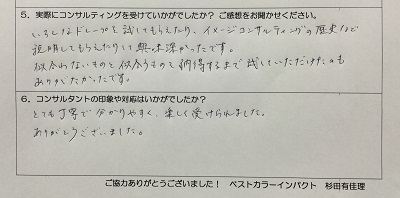 5．実際にコンサルティングを受けていかがでしたか？ ご感想をお聞かせください。
いろんなドレープを試してもらえたり、イメージコンサルティングの歴史など
説明してもらえたりして興味深かったです。
似合わないものと似合うものを納得するまで試していただけたのも
ありがたかったです。
6．コンサルタントの印象や対応はいかがでしたか？
とても丁寧で分かりやすく、楽しく受けられました。
ありがとうございました。
ご協力ありがとうございました！ ベストカラーインパクト 杉田有佳理